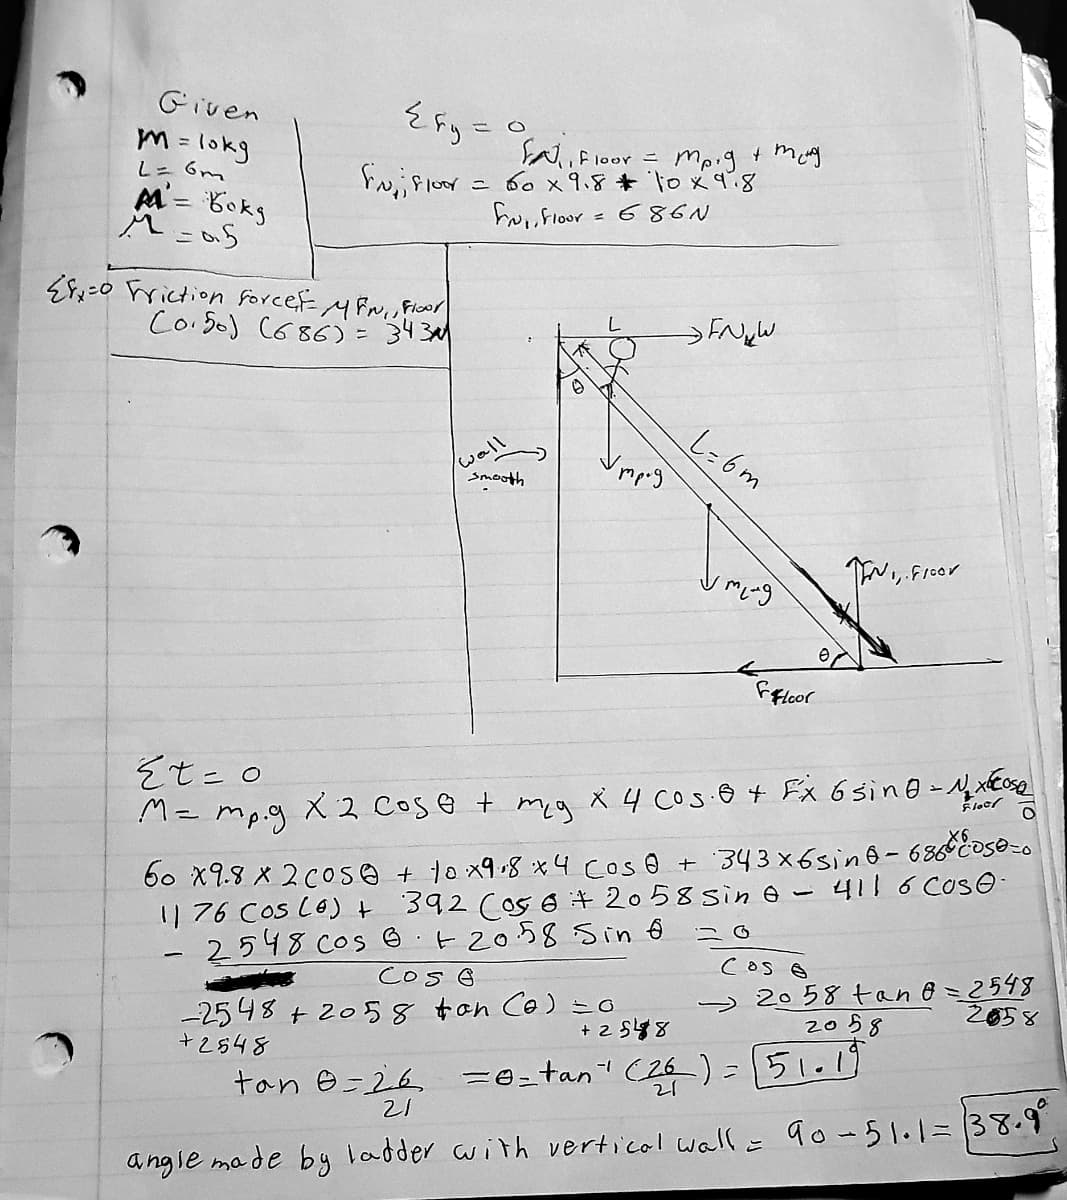 Given
m = 10kg
L = 6m
M' = 60kg
μ = 0.5
Σfy = 0
FN1, Floor = mp.g + mL.g
FN1, floor = 60 x 9.8 + 10 x 9.8
FN1, floor = 686N
Σfx=0 Friction force f = μ FN1, Floor
(0.50) (686) = 343N
L
FN2W
θ
L = 6m
wall
smooth
mp.g
mL.g
FN1, Floor
θ
F Floor
Στ = 0
M = mp.g x 2 cos θ + mLg x 4 cos θ + F x 6 sin θ - N1 x 6 cos θ = 0
Floor
60 x 9.8 x 2 cos θ + 10 x 9.8 x 4 cos θ + 343 x 6 sin θ - 686 x 6 cos θ = 0
1176 cos (θ) + 392 cos θ + 2058 sin θ - 4116 cos θ
- 2548 cos θ + 2058 sin θ = 0
cos θ cos θ
-2548 + 2058 tan (θ) = 0 → 2058 tan θ = 2548
+2548 +2548 2058 2058
tan θ = 26/21 = θ = tan⁻¹ (26/21) = 51.1°
angle made by ladder with vertical wall = 90 - 51.1 = 38.9°